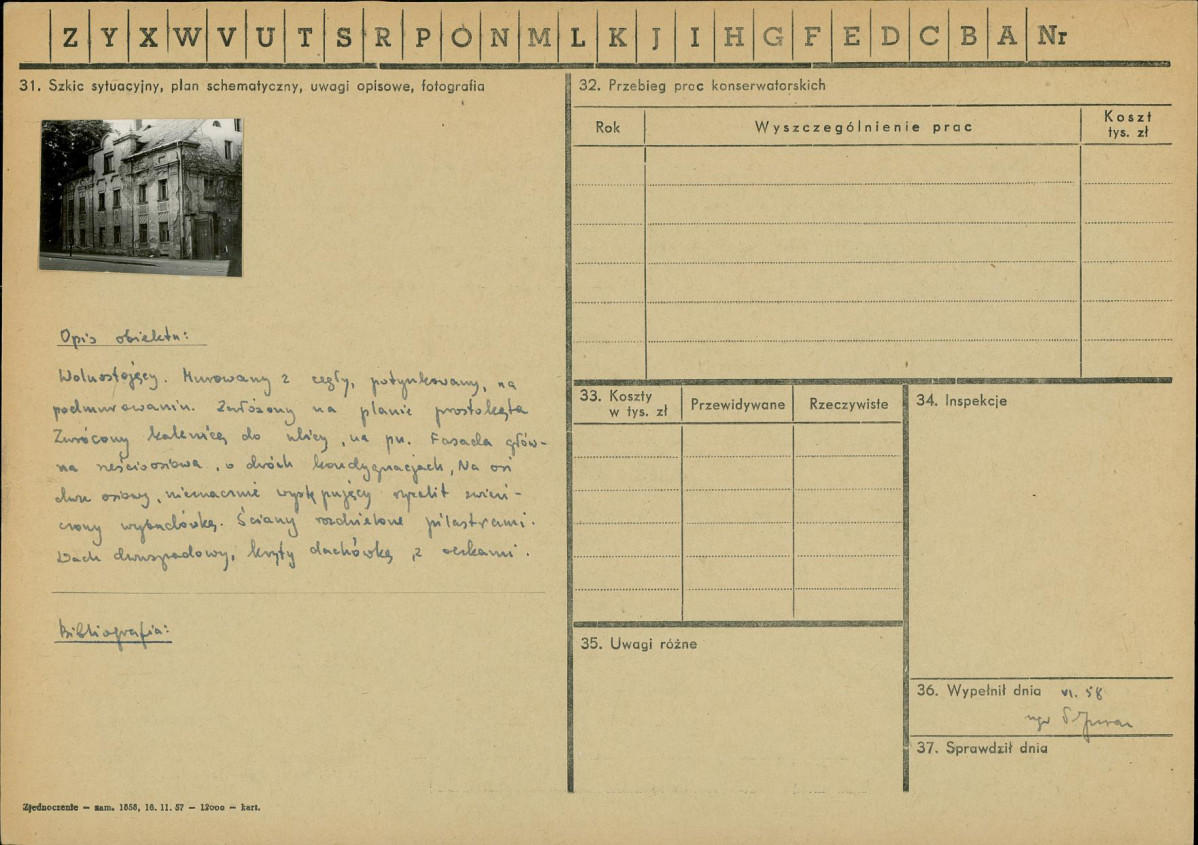 Z Y X W V U T S R P O N M L K J I H G F E D C B A Nr
31. Szkic sytuacyjny, plan schematyczny, uwagi opisowe, fotografia
Opis obiektu:
Wolnostojący. Murowany z cegły, potynkowany, na
podmurowaniu. Założony na planie prostokąta
Zwrócony kalenicą do ulicy, na pn. Fasada głów-
na sześcioosiowa, o dwóch kondygnacjach, Na osi
dwu osiowy, nieznacznie występujący ryzalit zwień-
czony wystawką. Ściany rozdzielone pilastrami.
Dach dwuspadowy, kryty dachówką, z oczkami.
Bibliografia:
Zjednoczenie – zam. 1858, 16. 11. 57 – 12000 – kart.
32. Przebieg prac konserwatorskich
Rok Wyszczególnienie prac Koszt
tys. zł
33. Koszty
w tys. zł Przewidywane Rzeczywiste
34. Inspekcje
35. Uwagi różne
36. Wypełnił dnia VI. 58
mgr
37. Sprawdził dnia